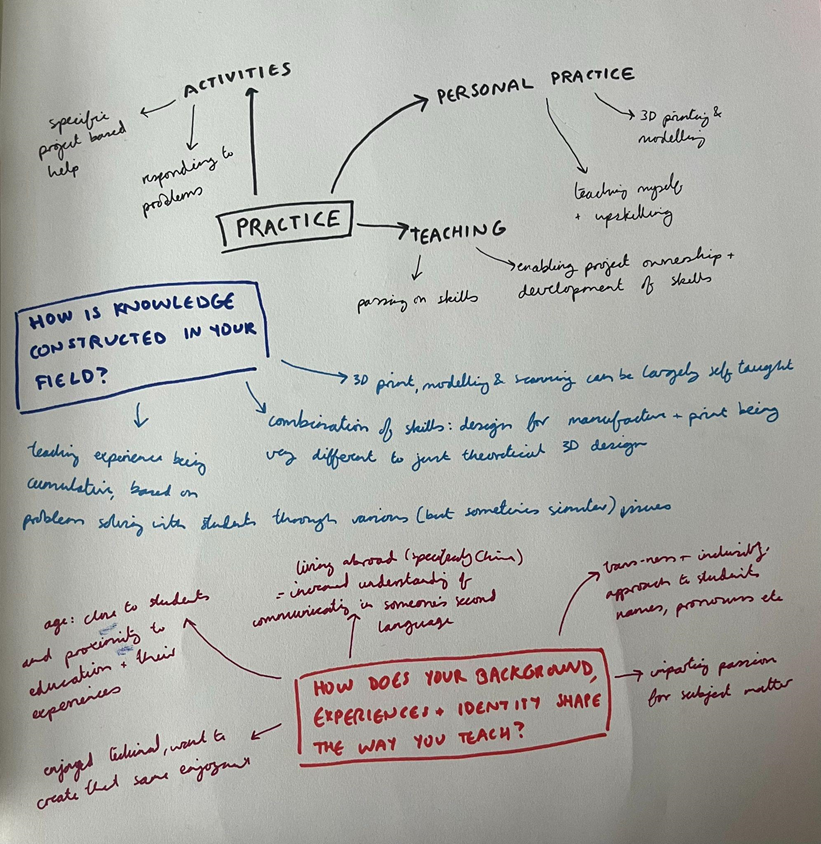 ACTIVITIES
specific
project based
help
responding to
problems
PERSONAL PRACTICE
3D printing &
modelling
teaching myself
+ upskilling
PRACTICE
TEACHING
passing on skills
enabling project ownership +
development of skills
HOW IS KNOWLEDGE
CONSTRUCTED IN YOUR
FIELD?
3D print, modelling & scanning can be largely self taught
combination of skills: design for manufacture + print being
very different to just theoretical 3D design
teaching experience being
cumulative, based on
problem solving with students through various (but sometimes similar) issues
age: close to students
and proximity to
education + their
experiences
living abroad (specifically China)
= increased understanding of
communicating in someone's second
language
trans-ness + inclusivity:
approach to students
names, pronouns etc
HOW DOES YOUR BACKGROUND,
EXPERIENCES + IDENTITY SHAPE
THE WAY YOU TEACH?
imparting passion
for subject matter
enjoyed technical, want to
create that same enjoyment